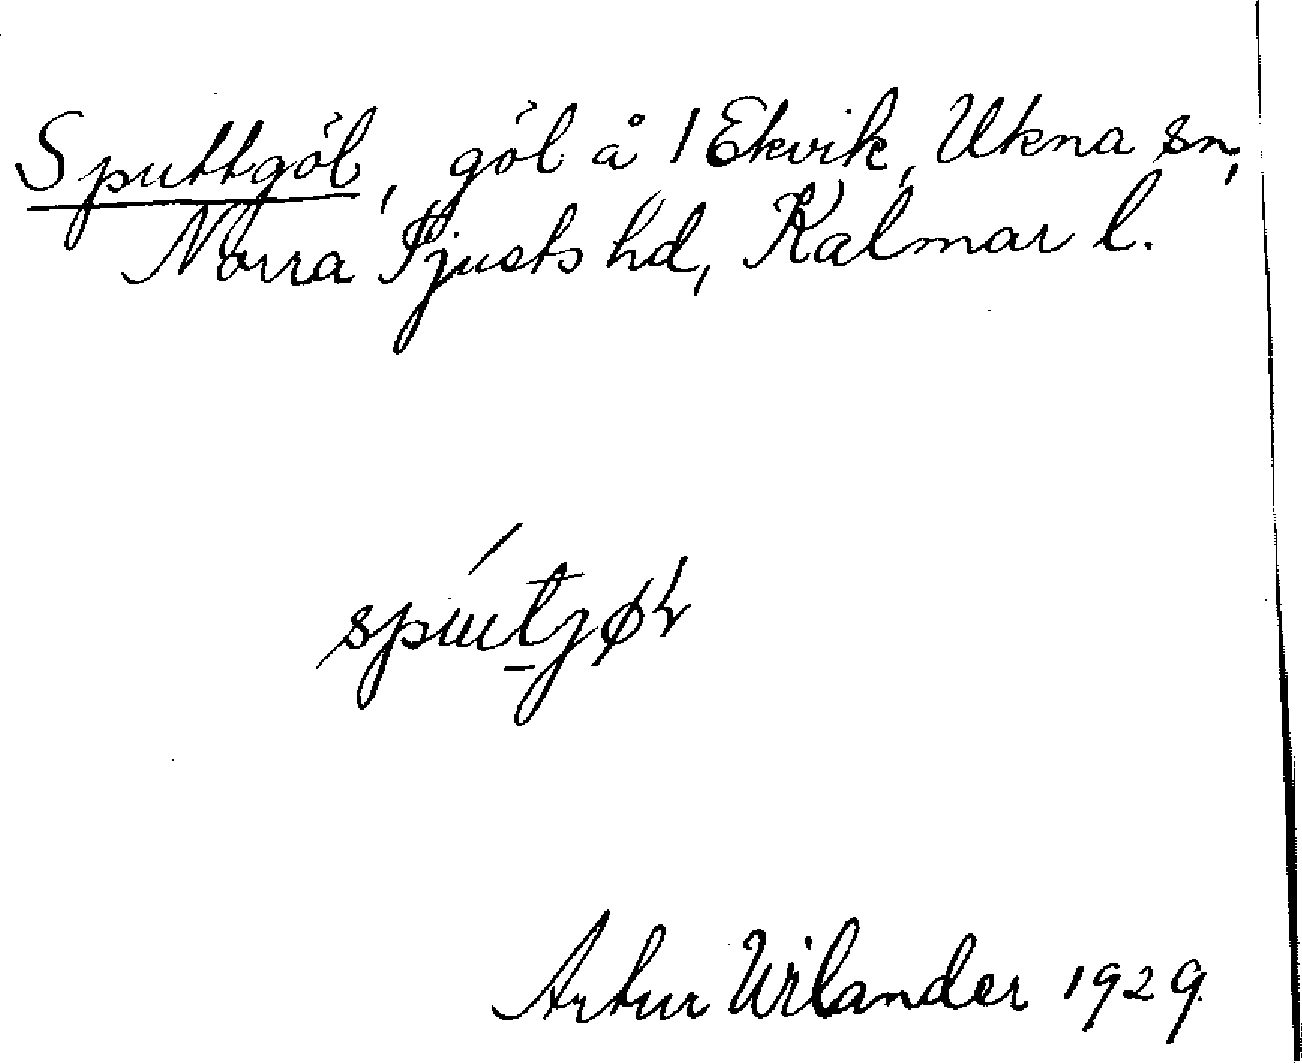 Sputtgöl, göl å 1 Ekvik, Ukna sn,
Norra Tjusts hd, Kalmar l.
Artur Wilander 1929.